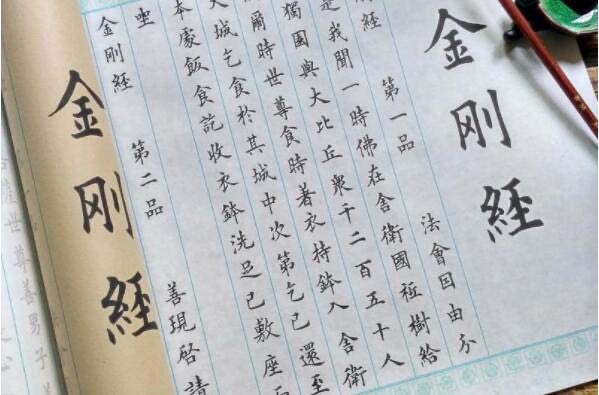 金刚經
刚經 第一品 法會因由分
是我聞一時佛在舍衛國祇樹給
獨園與大比丘衆千二百五十人
爾時世尊食時著衣持鉢入舍衛
大城乞食於其城中次第乞已還至
本處飯食訖收衣鉢洗足已敷座
坐
金刚經 第二品 善現啓請
金刚經
薩世尊善男子